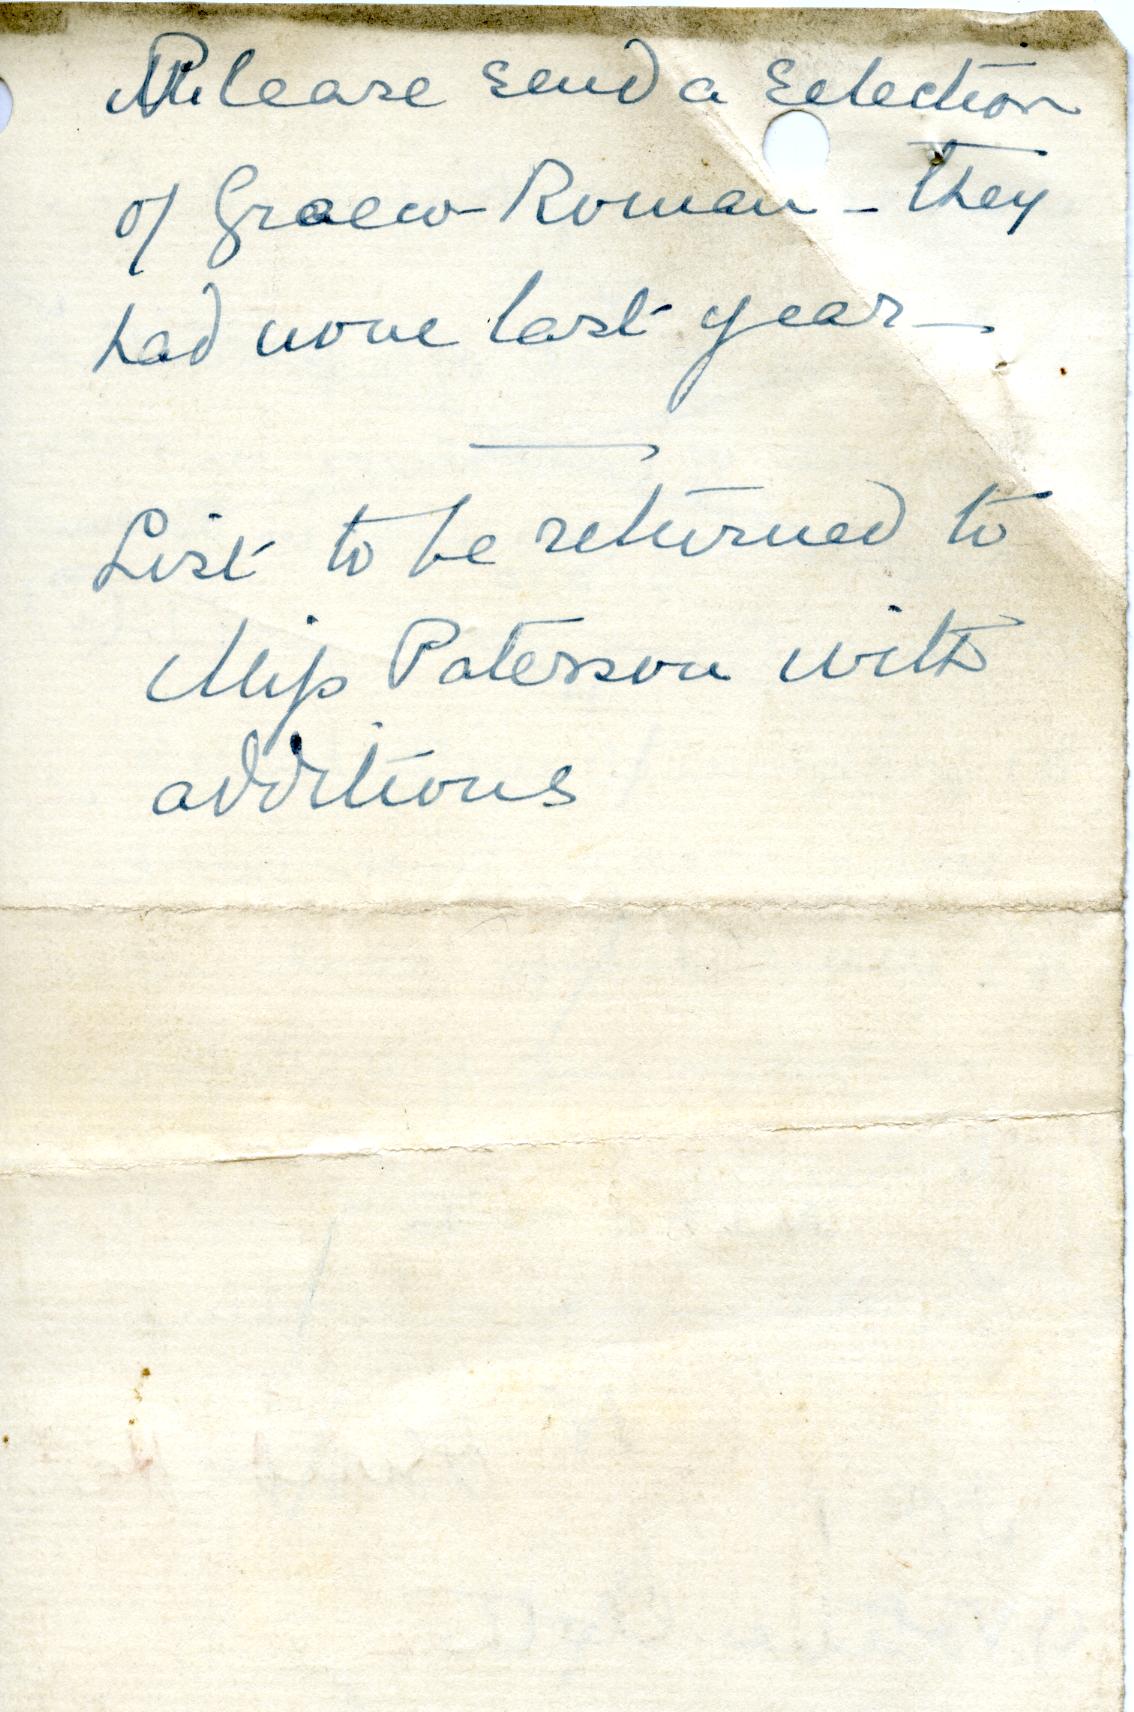 Please send a selection
of Graeco-Roman - they
had none last year -
List to be returned to
Miss Paterson with
additions